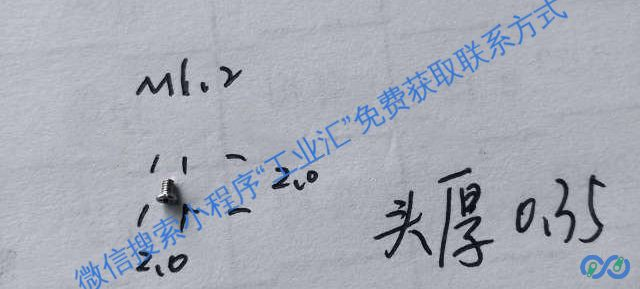 M1.2
2.0
2.0
头厚 0.35
微信搜索小程序“工业汇”免费获取联系方式